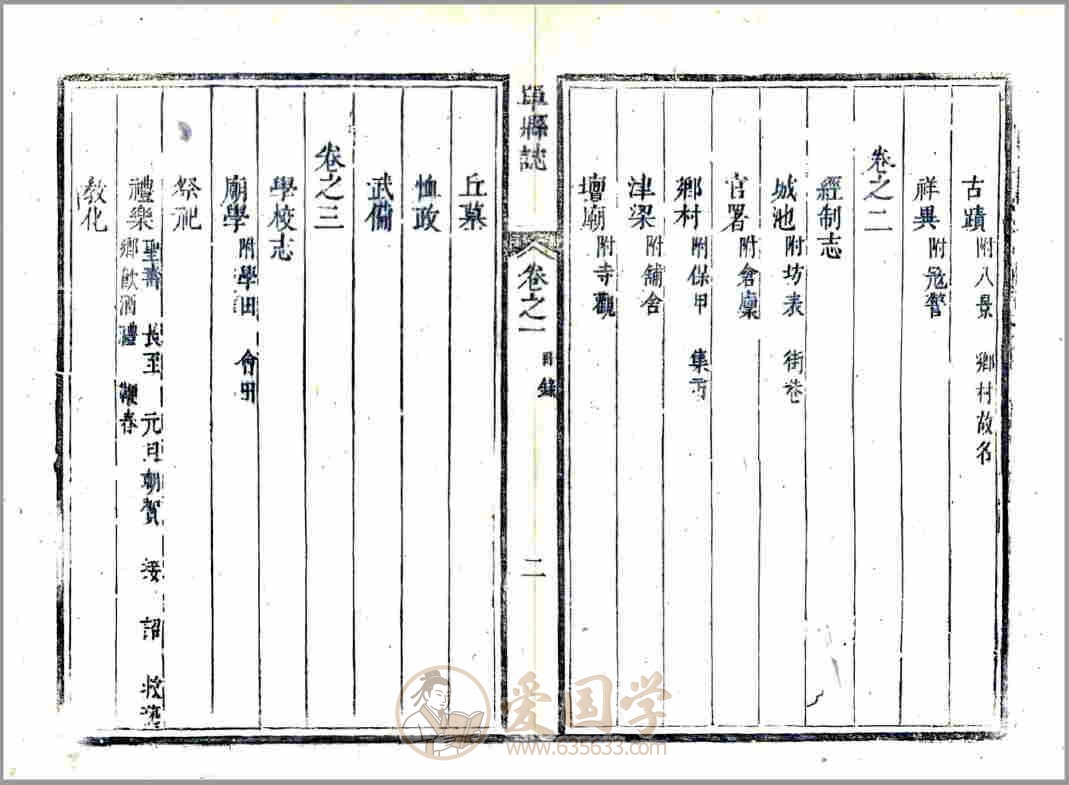 古蹟 附八景 鄉村故名
祥異 附寇警
卷之二
經制志
城池 附坊表 街巷
官署 附倉廩
鄉村 附保甲 集市
津梁 附舖舍
壇廟 附寺觀
單縣誌 卷之一 目錄 二
丘墓
恤政
武備
卷之三
學校志
廟學 附學田 會田
祭祀
禮樂 聖壽 長至 元旦朝賀 接 詔 救護
鄉飲酒禮 鞭春
教化
爱国学
www.635633.com